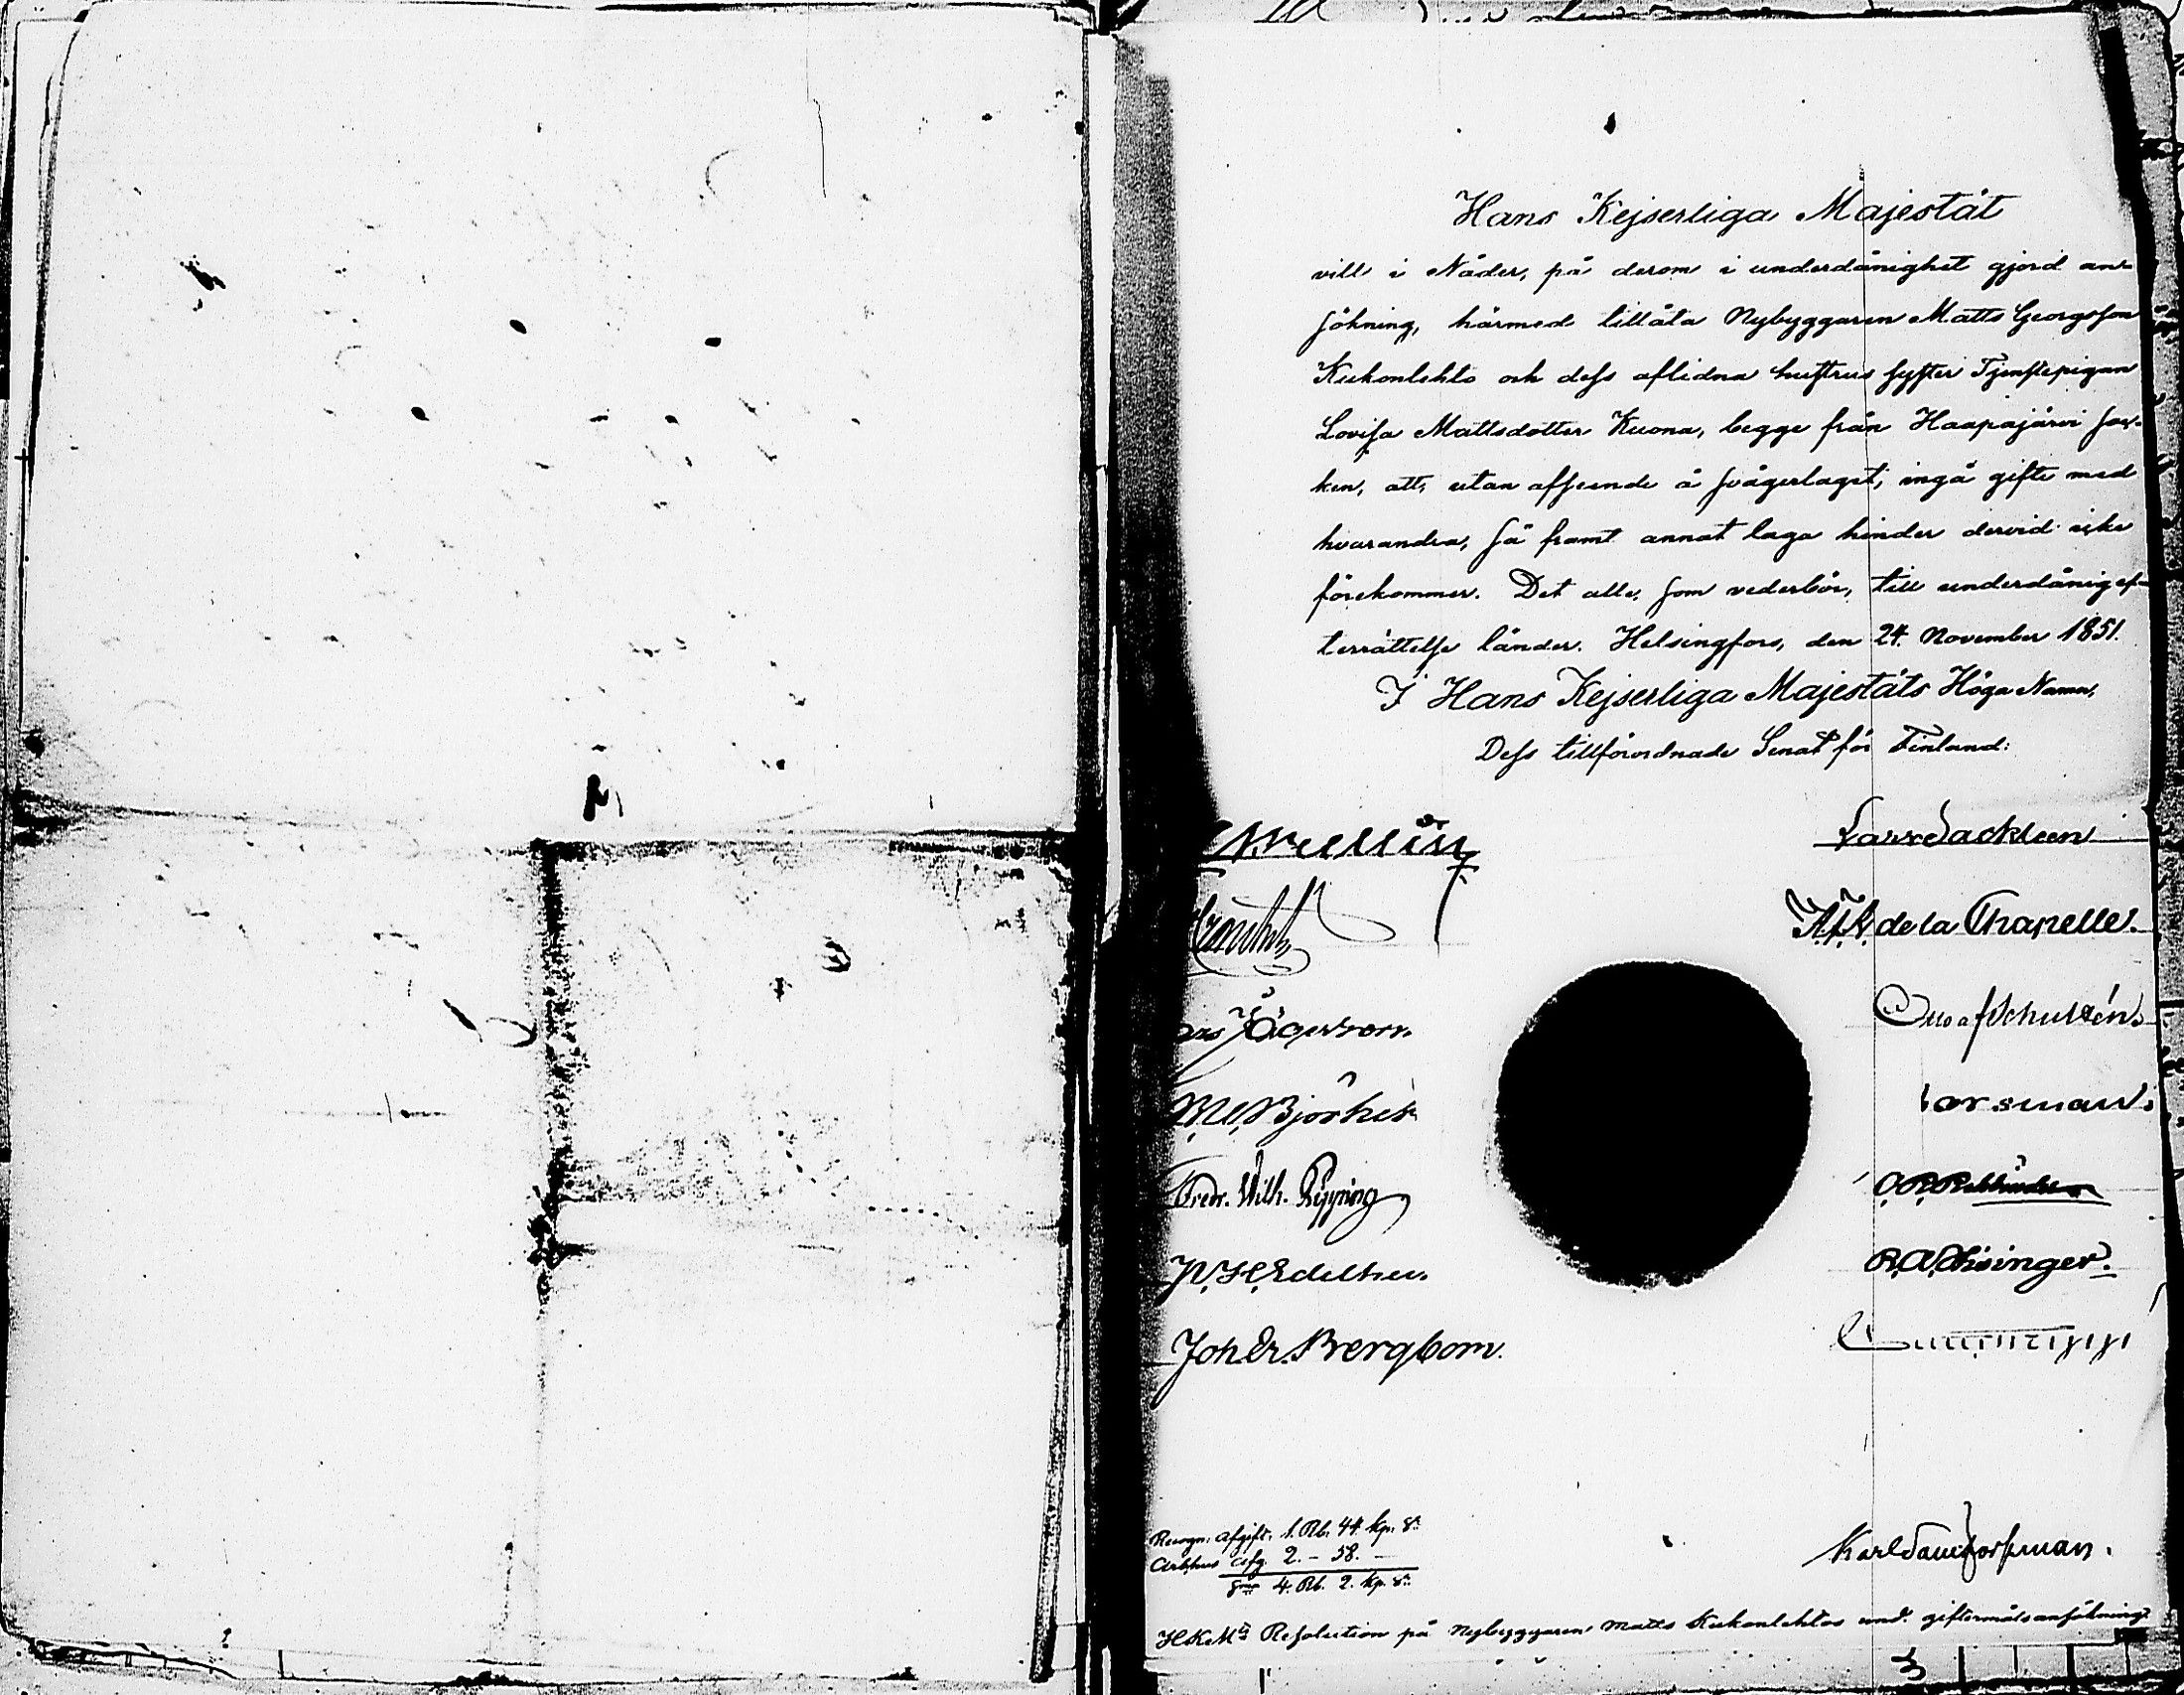 Hans Kejserliga Majestät
vill i Nåder, på derom i underdånighet gjord an-
sökning, härmed tillåta Nybyggaren Matts Georgsson
Kukonlehto och dess aflidna hustrus syster Tjenstepigan
Lovisa Mattsdotter Kuona, begge från Haapajärvi soc-
ken, att, utan afseende å svågerlaget, ingå gifte med
hvarandra, så framt annat laga hinder dervid icke
förekommer. Det alle, som vederbör, till underdånig ef-
terrättelse länder. Helsingfors, den 24 November 1851.
I Hans Kejserliga Majestäts Höga Namn,
Dess tillförordnade Senat för Finland:
Lars Sackleen
de la Chapelle.
Otto af Schultén.
Björkst
Fredr. Wilh. Pipping
R. A. Hisinger.
Joh. Er. Bergbom.
Karl Forssman.
Recogn: afgift. 1. Rb. 44. kp. Sr
afg. 2. - 58. -
4. Rb. 2. kp. Sr
HKMts Resolution på Nybyggaren Matts Kukonlehtos und. giftermålsansökning